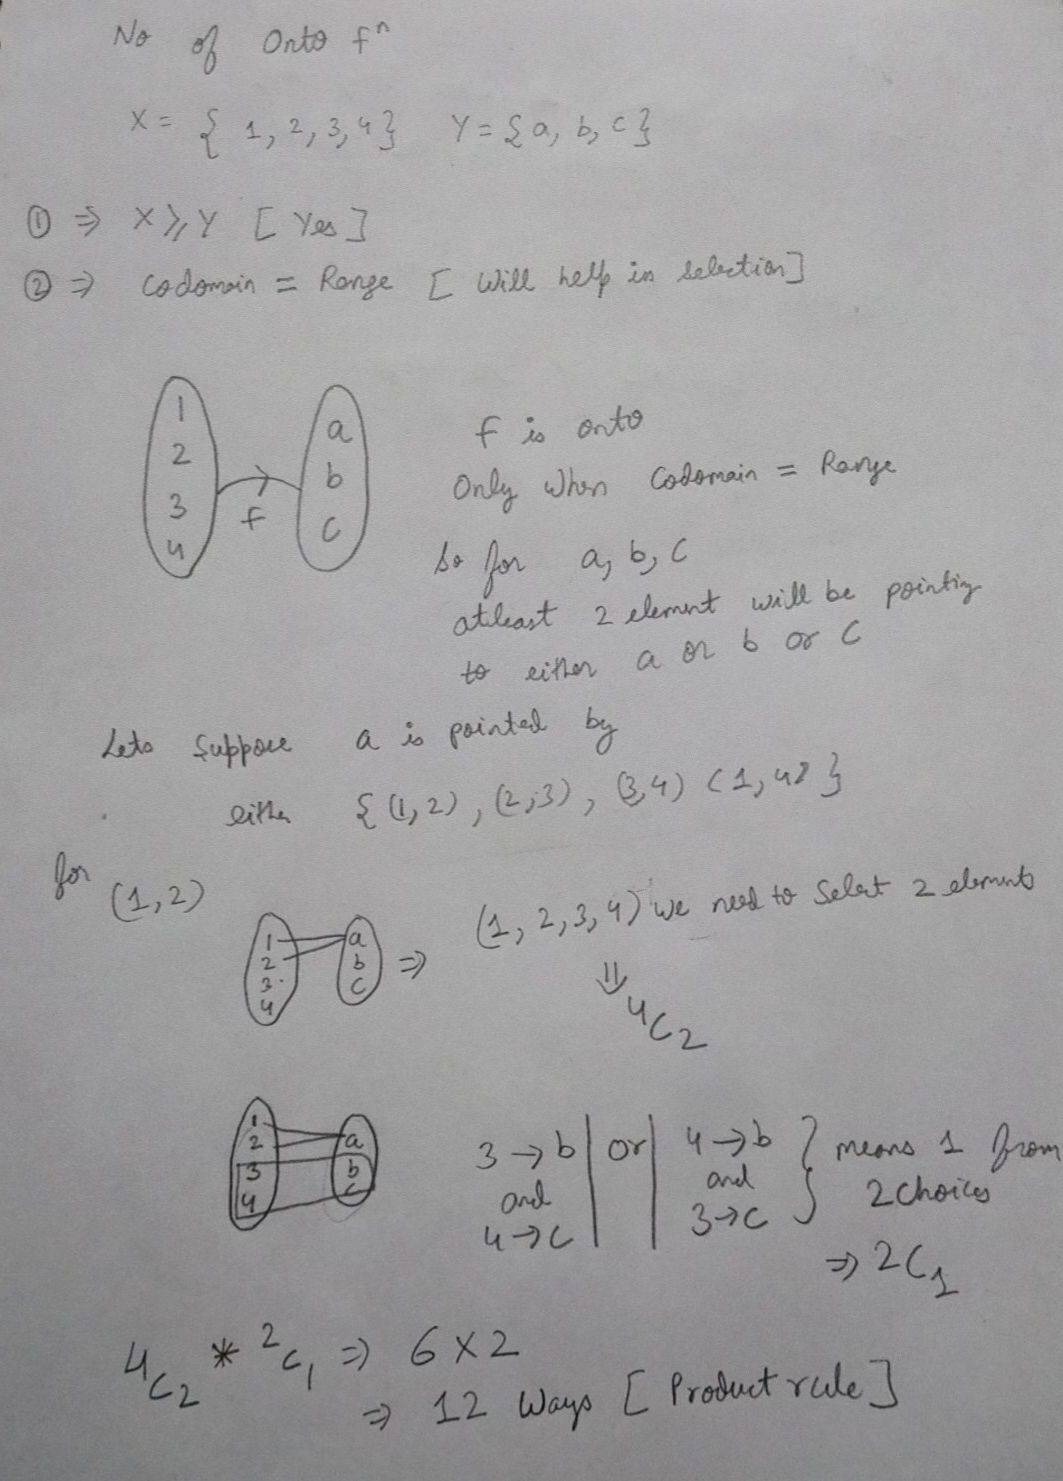 No of Onto fⁿ
X = { 1, 2, 3, 4 } Y = { a, b, c }
① ⇒ X ⩾ Y [ Yes ]
② ⇒ Codomain = Range [ Will help in selection ]
1
2
3
4
f
a
b
c
f is onto
Only when Codomain = Range
So for a, b, c
atleast 2 element will be pointing
to either a or b or c
Lets Suppose a is pointed by
either { (1, 2) , (2, 3) , (3, 4) (1, 4) }
for (1, 2)
1
2
3
4
a
b
c
⇒ (1, 2, 3, 4) we need to Select 2 elements
⇓
⁴C₂
1
2
3
4
a
b
c
3 → b | or | 4 → b } means 1 from
and and 2 choices
4 → c 3 → c
⇒ 2C₁
⁴C₂ * ²C₁ ⇒ 6 X 2
⇒ 12 Ways [ Product rule ]